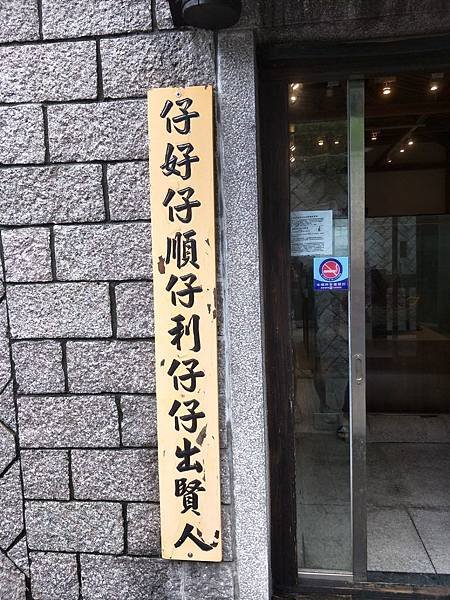 仔好仔順仔利仔仔出賢人